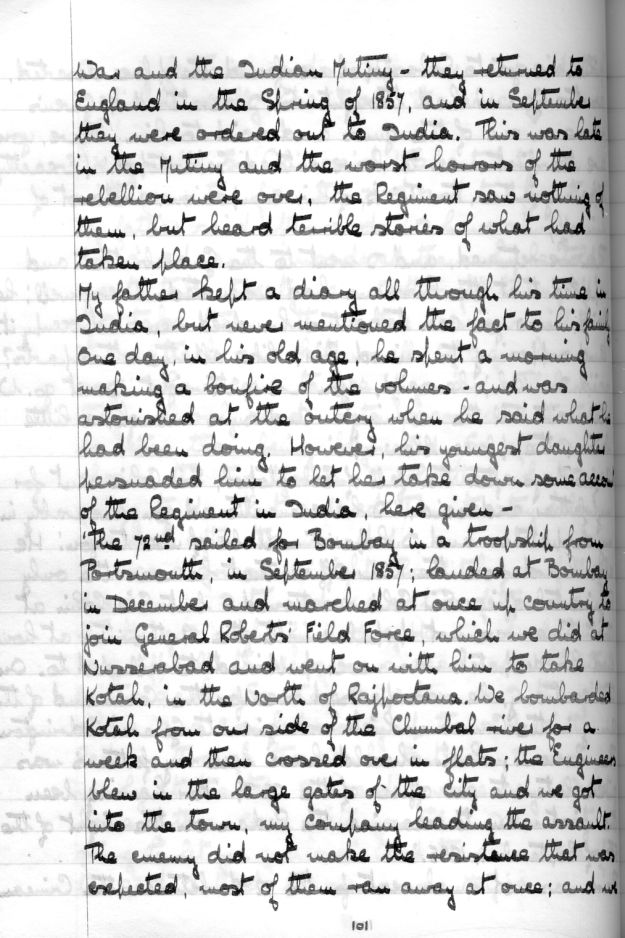 War and the Indian Mutiny - they returned to
England in the Spring of 1857, and in September
they were ordered out to India. This was late
in the Mutiny and the worst horrors of the
rebellion were over, the Regiment saw nothing of
them, but heard terrible stories of what had
taken place.
My father kept a diary all through his time in
India, but never mentioned the fact to his family
One day, in his old age, he spent a morning
making a bonfire of the volumes - and was
astonished at the outcry when he said what he
had been doing. However, his youngest daughter
persuaded him to let her take down some accou
of the Regiment in India, here given -
'The 72nd sailed for Bombay in a troopship from
Portsmouth, in September 1857; landed at Bombay
in December and marched at once up country to
join General Roberts' Field Force, which we did at
Nusserabad and went on with him to take
Kotah, in the North of Rajpootana. We bombarded
Kotah from our side of the Chumbal river for a
week and then crossed over in flats; the Engineers
blew in the large gates of the City and we got
into the town, my Company leading the assault.
The enemy did not make the resistence that was
expected, most of them ran away at once; and we
101